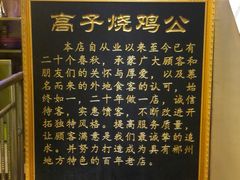 高子烧鸡公
本店自从业以来至今已有
二十个春秋，承蒙广大顾客和
朋友们的关怀与厚爱，以及慕
名而来的外地食客的认可，始
终如一，二十年做一店，诚信
待客，实惠馈客，不断改进开
拓独特风格。提高服务质量，
让顾客满意是我们最诚挚的追
求。并努力打造成为具有郴州
地方特色的百年老店。